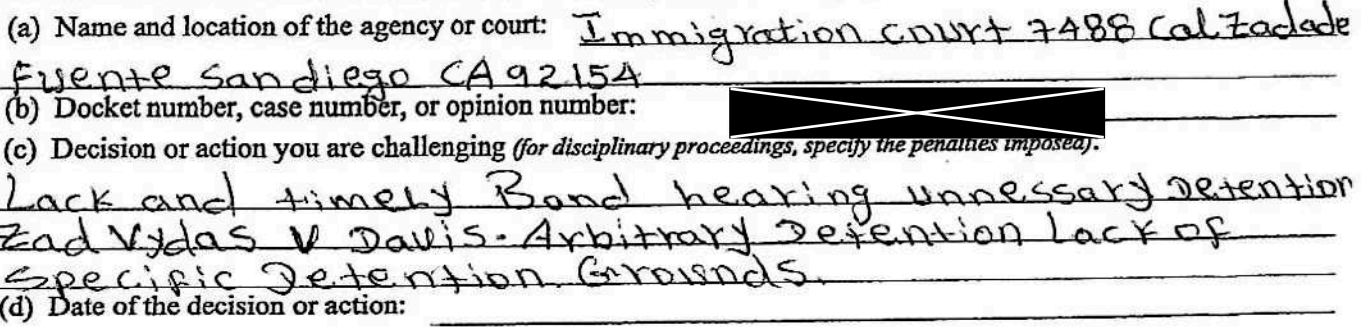 (a) Name and location of the agency or court: Immigration court 7488 Calzadade
Fuente Sandiego CA 92154
(b) Docket number, case number, or opinion number:
(c) Decision or action you are challenging (for disciplinary proceedings, specify the penalties imposed):
Lack and timely Bond hearing unnessary Detention
Zad Vydas V Davis - Arbitrary Detention Lack of
Specific Detention Grounds.
(d) Date of the decision or action: